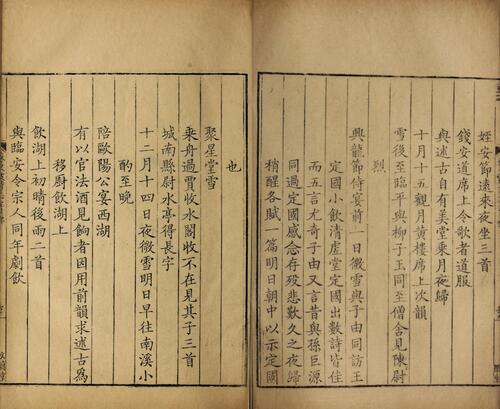 姪安節遠來夜坐三首
錢安道席上令歌者道服
與述古自有美堂乘月夜歸
十月十五觀月黃樓席上次韻
雪後至臨平與柳子玉同至僧舍見陳尉
烈
興龍節侍宴前一日微雪與子由同訪王
定國小飲清虛堂定國出數詩皆佳
而五言尤奇子由又言昔與孫巨源
同過定國感念存歿悲歎久之夜歸
稍醒各賦一篇明日朝中以示定國
也
聚星堂雪
乘舟過賈收水閣收不在見其子三首
城南縣尉水亭得長字
十二月十四日夜微雪明日早往南溪小
酌至晚
陪歐陽公宴西湖
有以官法酒見餉者因用前韻求述古為
移厨飲湖上
飲湖上初晴後雨二首
與臨安令宗人同年劇飲